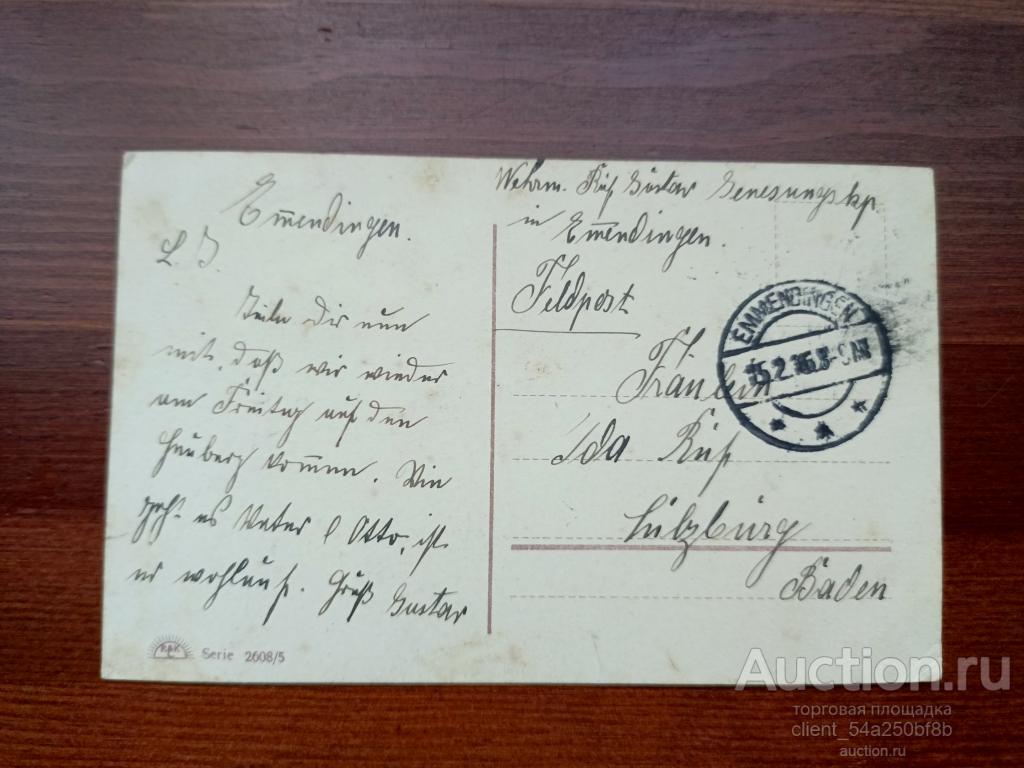 Emmendingen.
L. J.
Teile dir nun
mit, daß wir wieder
am Freitag auf den
Heuberg kommen. Wie
geht es Vater & Otto, ist
er wohlauf. Gruß Gustav
R&K
L
Serie 2608/5
Wehrm. Ruf Gustav Genesungskp.
in Emmendingen.
Feldpost
Fräulein
Ida Ruf
Sulzburg
Baden
EMMENDINGEN
15.2.
Auction.ru
торговая площадка
client_54a250bf8b
auction.ru